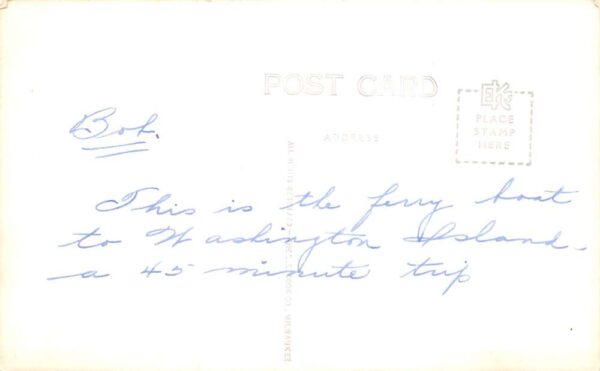 POST CARD
EKC
PLACE
STAMP
HERE
ADDRESS
Bob.
This is the ferry boat
to Washington Island -
a 45 minute trip
MILWAUKEE